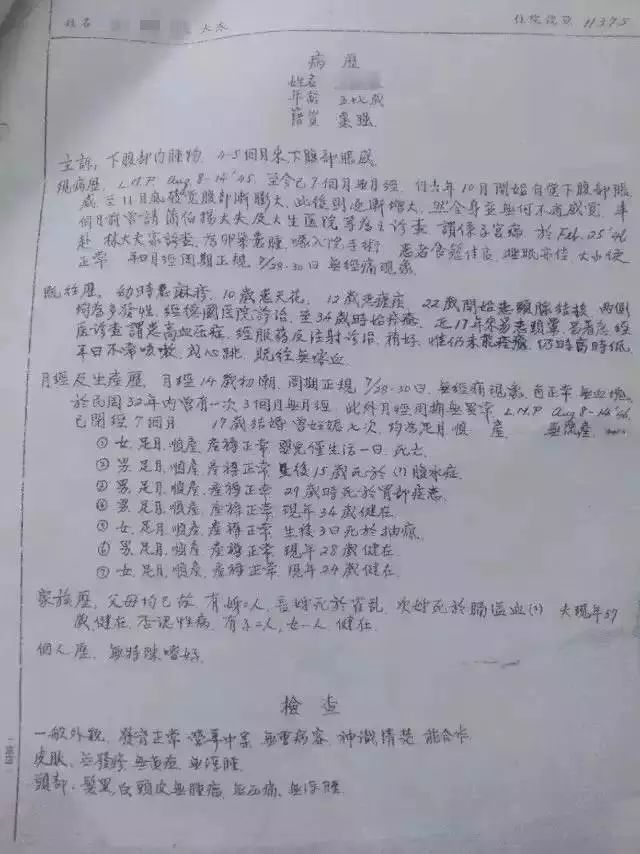 姓名 太太 住院號數 11375
病歷
姓名
年齡 五十七歲
籍貫
主訴, 下腹部內腫物, 4-5個月來下腹部脹感
現病歷, L.M.P. Aug 8-14'45, 至今已7個月無月經, 自去年10月開始自覺下腹部脹
感 至11月底發覺腹部漸膨大, 此後則逐漸增大, 然全身並無何不適感覺, 曾
大夫及大生医院等處診查, 謂係子宮瘤, 於Feb. 25'46
赴 林大夫家診查, 為卵巢囊腫, 囑入院手術 患者食慾佳良, 睡眠亦佳, 大小便
正常 和月經周期正規, 7/29-30日 無經痛現象
既往歷, 幼時患麻疹, 10歲患天花, 12歲患瘧疾, 22歲開始患頸腺結核, 兩側
均為多發性, 經德國医院診治, 至34歲時始痊癒, 近17年來
診查謂患高血压症, 經服藥及注射診治, 稍好, 惟仍未能痊癒, 仍時高時低
平日不常咳嗽, 及心跳, 既往無嘔血
月經及生產歷, 月經14歲初潮, 周期正規, 7/29-30日, 無經痛現象, 色正常, 無血塊
於民国32年內曾有一次3個月無月經, 此外月經周期無異常, L.M.P. Aug 8-14'46,
已閉經7個月 17歲結婚 曾妊娩七次, 均為足月順產, 無流產
① 女, 足月, 順產, 產褥正常 嬰兒僅生活一日, 死亡
② 男, 足月, 順產, 產褥正常 生後15歲死於(?)腹水症
③ 男, 足月, 順產, 產褥正常 29歲時死於胃部疾患
④ 男, 足月, 順產, 產褥正常 現年34歲健在
⑤ 女, 足月, 順產, 產褥正常 生後3日死於抽瘋
⑥ 男, 足月, 順產, 產褥正常 現年28歲健在
⑦ 女, 足月, 順產, 產褥正常 現年24歲健在
家族歷, 父母均已故 有姊二人, 長姊死於霍亂, 次姊死於腦溢血(?) 夫現年59
歲, 健在, 否認性病, 有子二人, 女一人, 健在
個人歷, 無特殊嗜好
檢查
一般外觀, 發育正常, 營養中等, 無重病容, 神識清楚, 能合作
皮膚, 無發疹, 無黃疸, 無浮腫
頭部, 髮黑白, 頭皮無腫瘤, 無压痛, 無浮腫